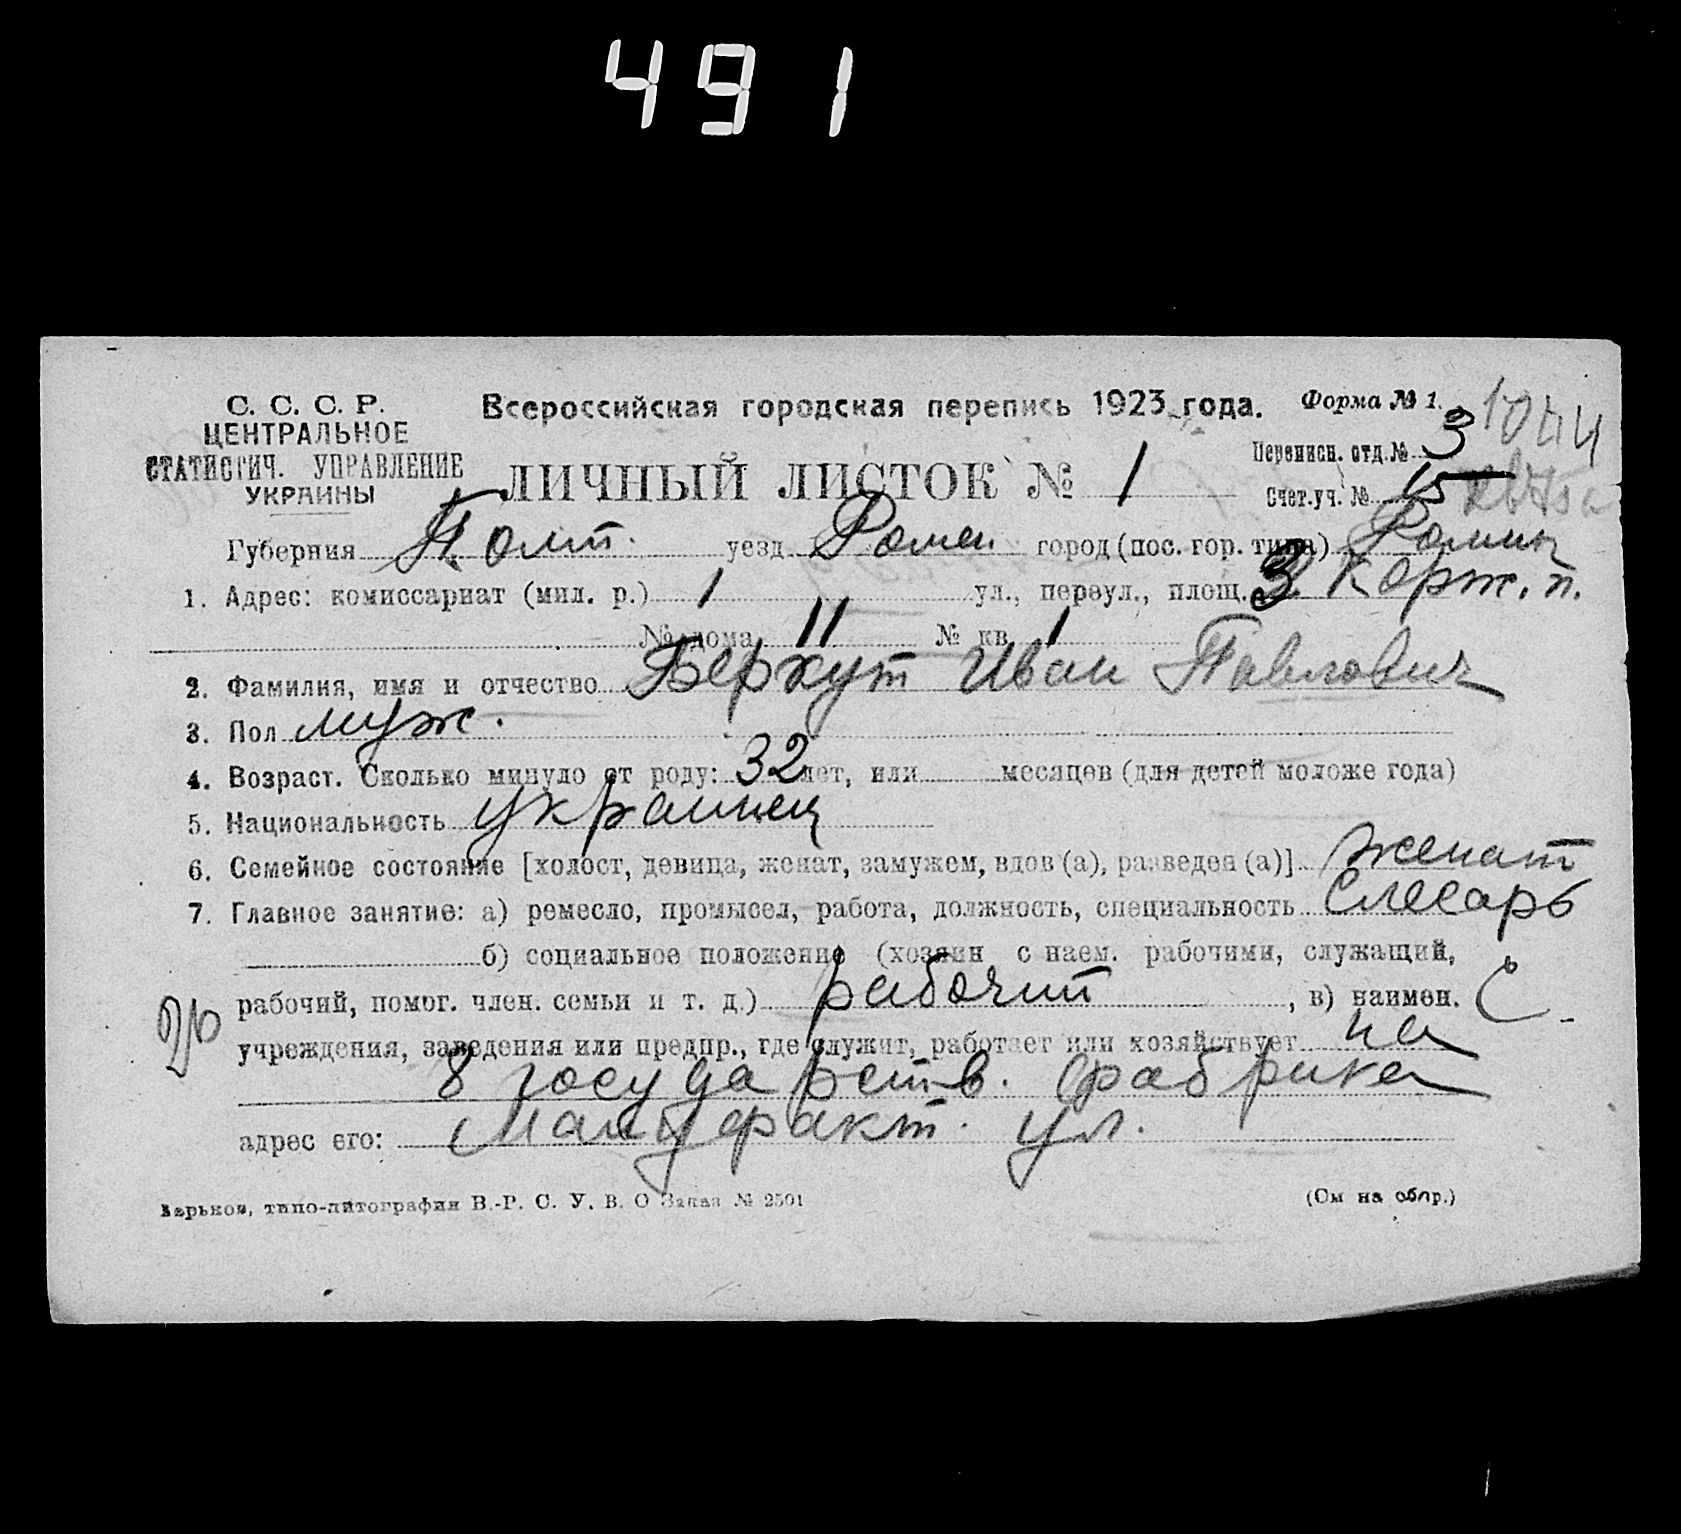 491
С. С. С. Р.
ЦЕНТРАЛЬНОЕ
СТАТИСТИЧ. УПРАВЛЕНИЕ
УКРАИНЫ
Всероссийская городская перепись 1923 года.
Форма № 1.
1044
ЛИЧНЫЙ ЛИСТОК № 1
Переписн. отд. № 3
Счет. уч. № 15
Губерния Полт. уезд Ромен город (пос. гор. типа) Ромны
1. Адрес: комиссариат (мил. р.) 1 ул., переул., площ. 3 Корж. п.
№ дома 11 № кв. 1
2. Фамилия, имя и отчество Беркут Иван Павлович
3. Пол муж.
4. Возраст. Сколько минуло от роду: 32 лет, или месяцев (для детей моложе года)
5. Национальность украинец
6. Семейное состояние [холост, девица, женат, замужем, вдов (а), разведен (а)] женат
7. Главное занятие: а) ремесло, промысел, работа, должность, специальность Слесарь
б) социальное положение (хозяин с наем. рабочими, служащий,
рабочий, помог. член. семьи и т. д.) рабочий, в) наимен.
учреждения, заведения или предпр., где служит, работает или хозяйствует на
8 государств. фабрике
адрес его: Мануфакт. ул.
Харьков, типо-литография В.-Р. С. У. В. О Заказ № 2501
(См на обор.)